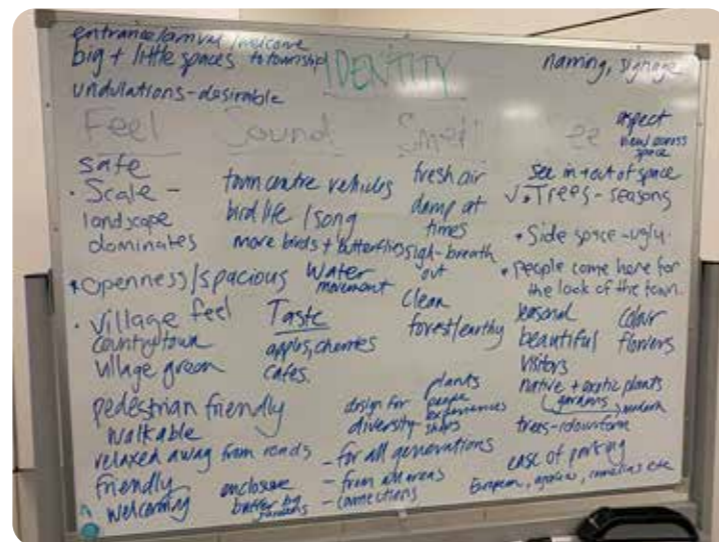 entrance/arrival/welcome
big + little spaces to township
IDENTITY
naming, signage
undulations - desirable
Feel
Sound
Smell
See
aspect
view across
space
safe
• Scale -
landscape
dominates
* openness/spacious
• village feel
country town
village green
pedestrian friendly
walkable
relaxed away from roads
friendly
welcoming
town centre vehicles
bird life / song
more birds + butterflies
water
movement
Taste
apples, cherries
cafes.
enclosure
buffer by
gardens
fresh air
damp at
times
sigh - breath
out
clean
forest/earthy
design for
diversity -
plants
people
experiences
shops
- for all generations
- from all areas
- connections
see in + out of space
Trees - seasons
• Side space - ugly.
• People come here for
the look of the town.
seasonal
colour
beautiful
flowers
visitors
native + exotic plants
gardens
modern
trees -
ease of parking
European, azaleas, camelias etc